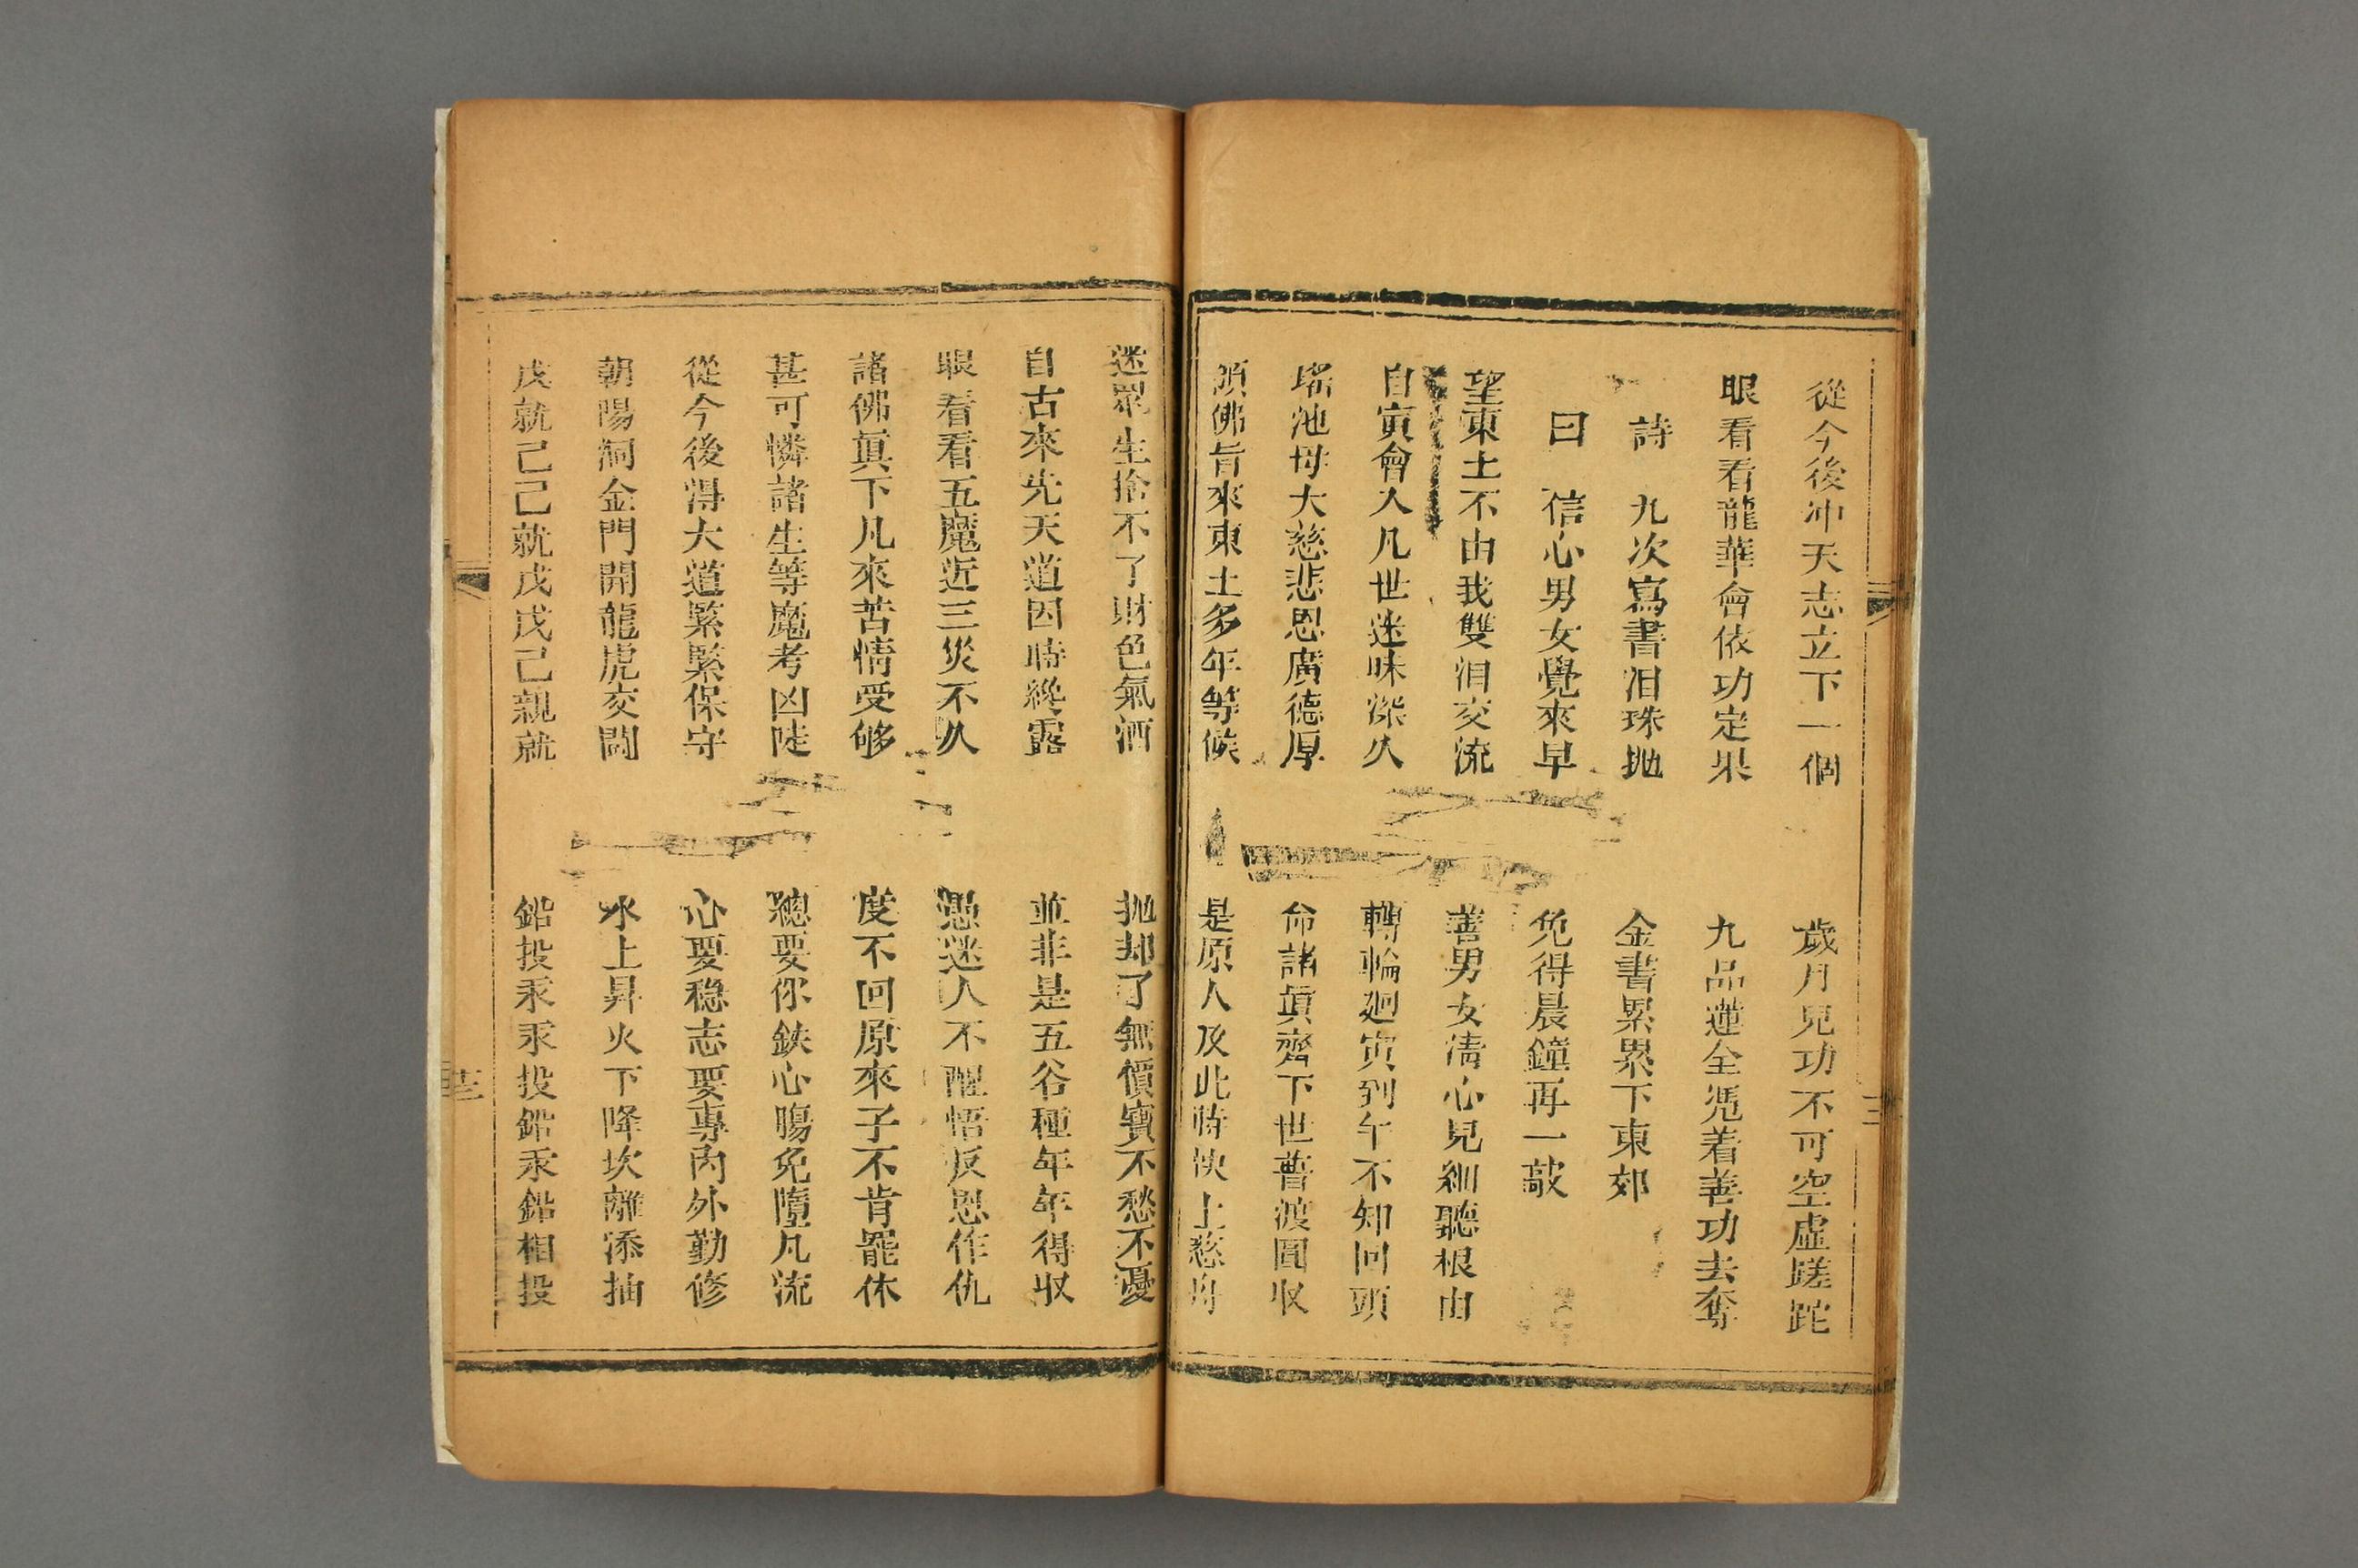 從今後冲天志立下一個　歲月兒功不可空虛蹉跎
眼看看龍華會依功定果　九品蓮全憑着善功去奪
詩　九次寫書泪珠拋　金書累累下東郊
曰　信心男女覺來早　免得晨鐘再一敲
望東土不由我雙泪交流　善男女淸心兒細聽根由
自寅會入凡世迷昧深久　轉輪廻寅到午不知回頭
瑤池母大慈悲恩廣德厚　命諸眞齊下世普渡圓収
領佛旨來東土多年等候　是原人及此時快上慈舟
迷眾生捨不了財色氣酒　拋却了無價寶不愁不憂
自古來先天道因時纔露　並非是五谷種年年得収
眼看看五魔近三災不久　愚迷人不醒悟反恩作仇
諸佛眞下凡來苦情受够　度不回原來子不肯罷休
甚可憐諸生等魔考凶陡　總要你鉄心腸免墮凡流
從今後得大道緊緊保守　心要稳志要專內外勤修
朝陽洞金門開龍虎交鬪　水上昇火下降坎離添抽
戊就己己就戊戊己親就　鉛投汞汞投鉛汞鉛相投